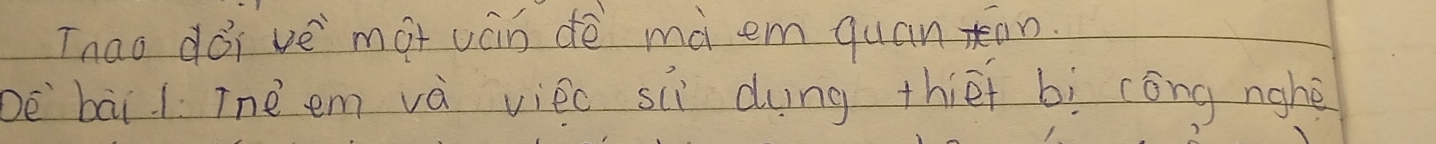 Thao đổi về một vấn đề mà em quan tân.
Đề bài 1. Thẻ em và việc sử dụng thiết bị công nghệ